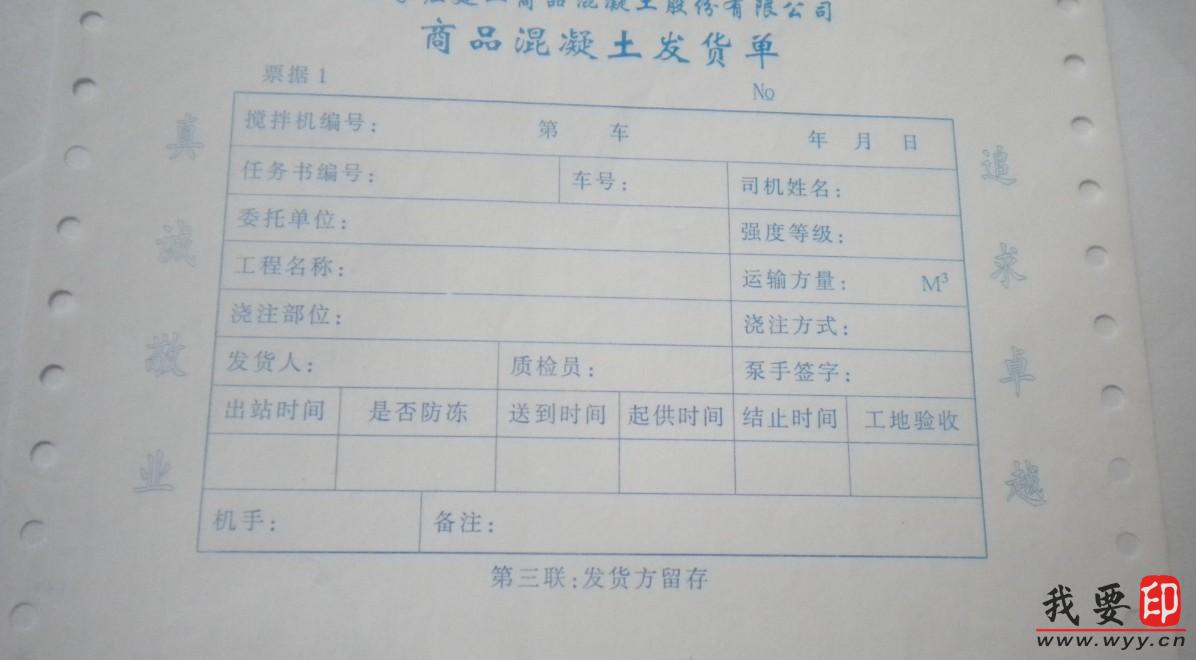 商品混凝土股份有限公司
商品混凝土发货单
票据1
№
搅拌机编号： 第 车 年 月 日
任务书编号： 车号： 司机姓名：
委托单位： 强度等级：
工程名称： 运输方量： M³
浇注部位： 浇注方式：
发货人： 质检员： 泵手签字：
出站时间 是否防冻 送到时间 起供时间 结止时间 工地验收
机手： 备注：
第三联：发货方留存
真诚敬业
追求卓越
我要印
www.wyy.cn